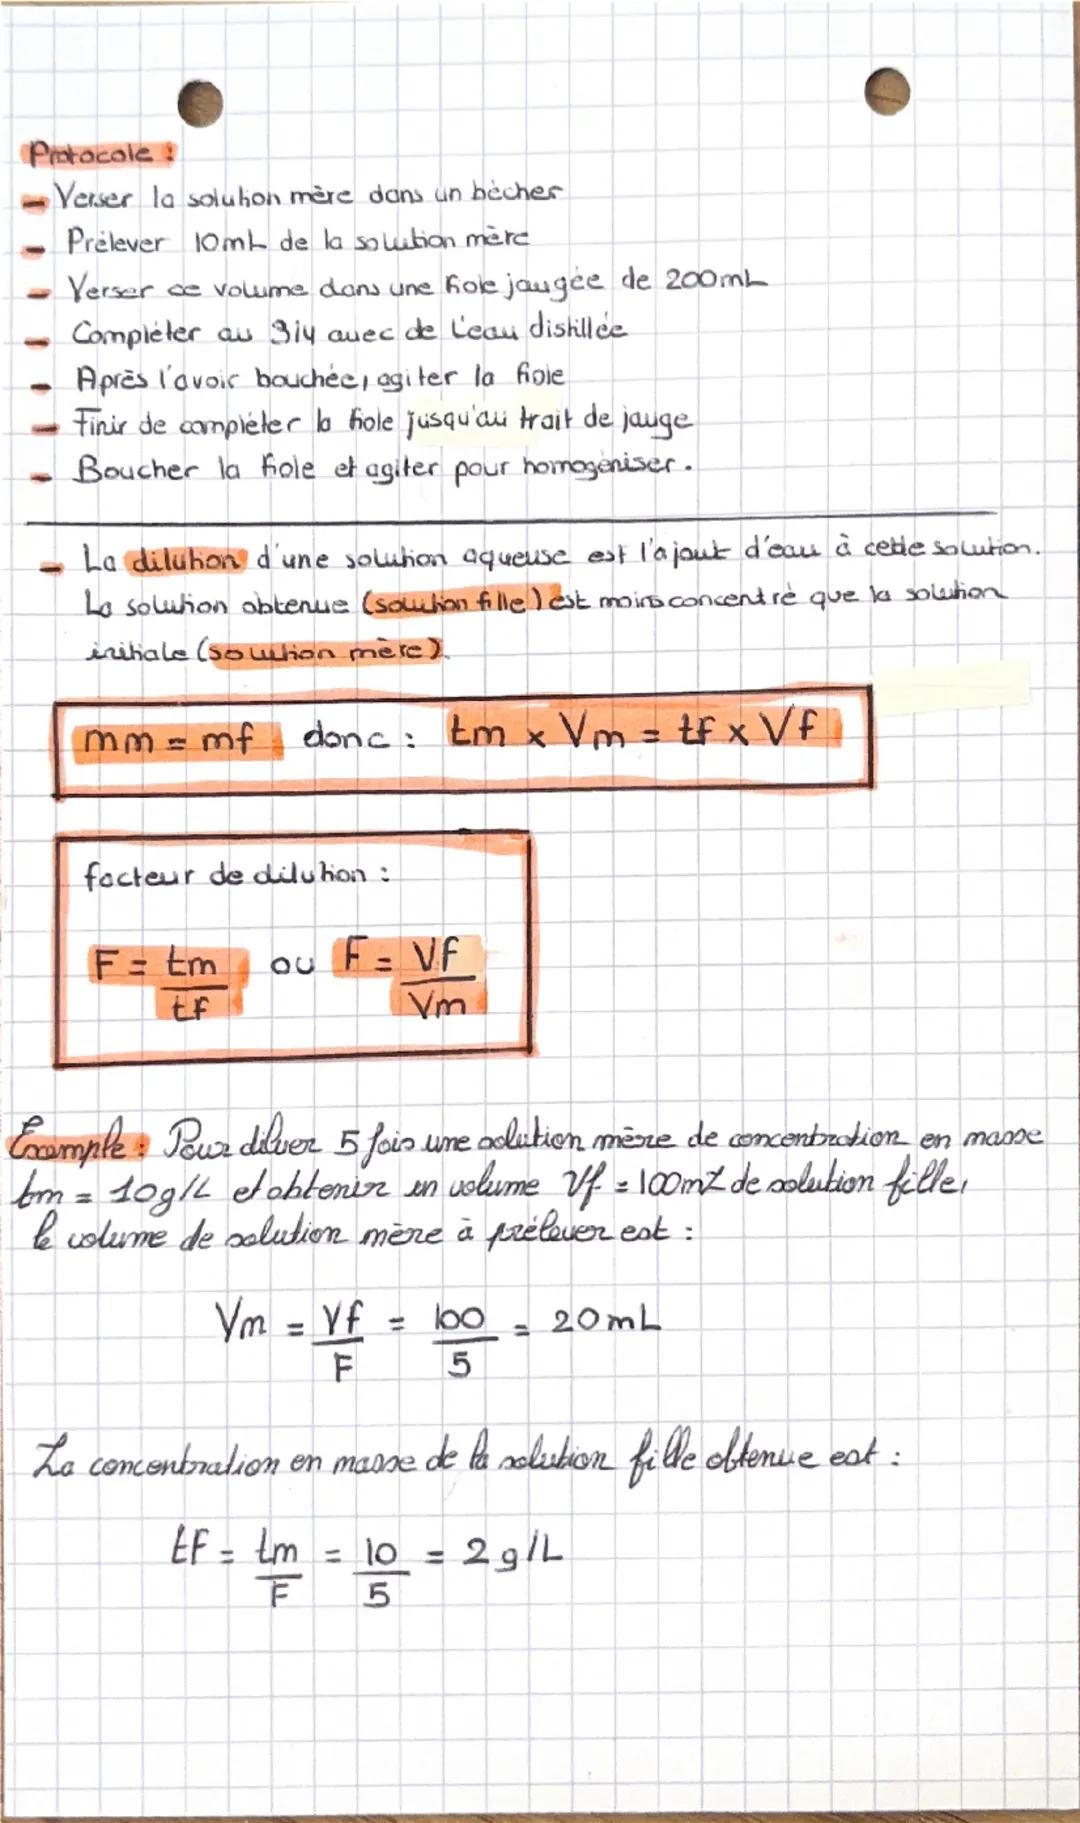 Protocole :
- Verser la solution mère dans un bécher
- Prélever 10mL de la solution mère
- Verser ce volume dans une fiole jaugée de 200mL
- Compléter au 3/4 avec de l'eau distillée
- Après l'avoir bouchée, agiter la fiole
- Finir de compléter la fiole jusqu'au trait de jauge
- Boucher la fiole et agiter pour homogéniser.
- La dilution d'une solution aqueuse est l'ajout d'eau à cette solution.
La solution obtenue (solution fille) est moins concentré que la solution
initiale (solution mère).
mm = mf donc : tm x Vm = tf x Vf
facteur de dilution :
F = tm/tf ou F = Vf/Vm
Exemple : Pour diluer 5 fois une solution mère de concentration en masse
tm = 10g/L et obtenir un volume Vf = 100mL de solution fille,
le volume de solution mère à prélever est :
Vm = Vf/F = 100/5 = 20mL
La concentration en masse de la solution fille obtenue est :
tf = tm/F = 10/5 = 2g/L